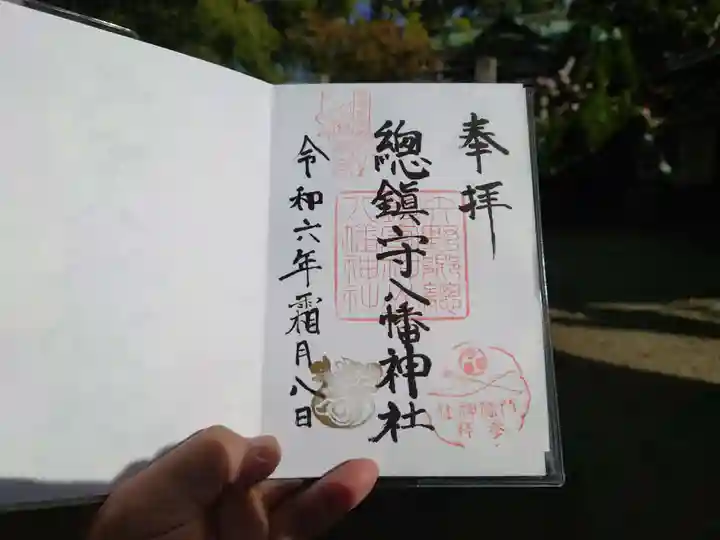 奉拝
總鎮守八幡神社
令和六年霜月八日
八幡神社